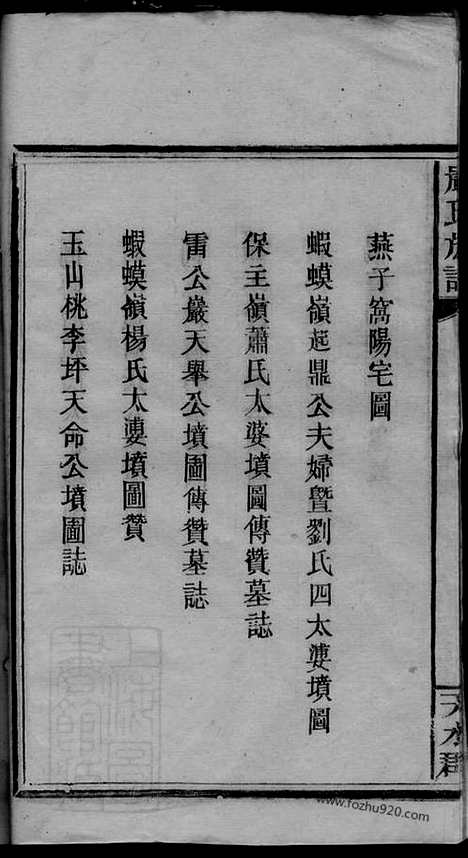 嚴氏族譜
天水郡
燕子窩陽宅圖
蝦蟆嶺起鼎公夫婦暨劉氏四太婆墳圖
保主嶺蕭氏太婆墳圖傳贊墓誌
雷公巖天舉公墳圖傳贊墓誌
蝦蟆嶺楊氏太婆墳圖贊
玉山桃李坪天命公墳圖誌
www.fozhu920.com